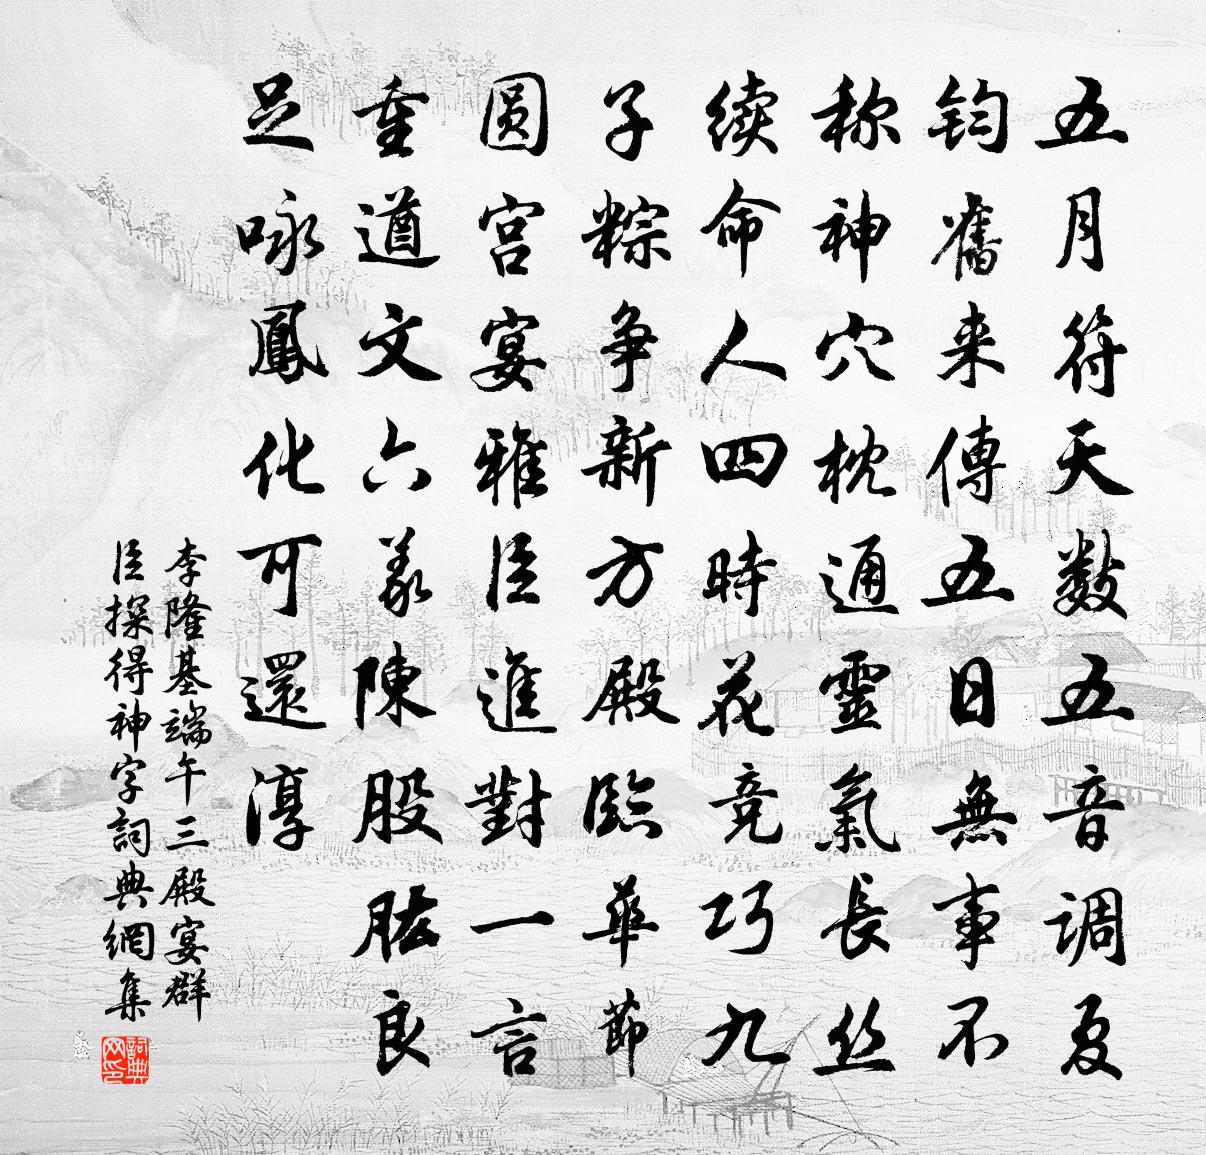 五月符天数五音调夏
钧舊来傳五日無事不
称神穴枕通靈氣長丝
续命人四時花竞巧九
子粽争新方殿臨華節
圆宫宴雅臣進對一言
重遒文六義陳股肱良
足咏鳳化可還淳
李隆基端午三殿宴群
臣探得神字詞典網集